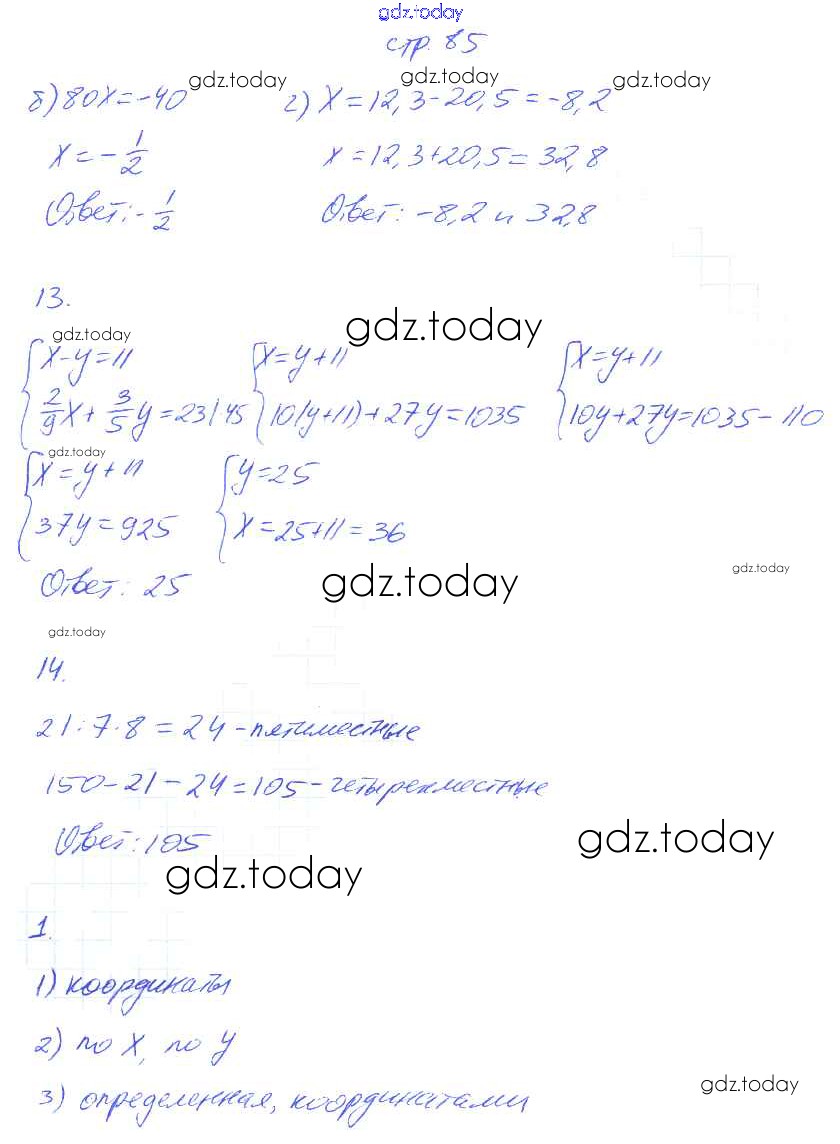 gdz.today
стр. 85
gdz.today gdz.today gdz.today
б) 80x = -40 г) x = 12,3 - 20,5 = -8,2
x = -1/2 x = 12,3 + 20,5 = 32,8
Ответ: -1/2 Ответ: -8,2 и 32,8
13.
gdz.today gdz.today
{x - y = 11 {x = y + 11 {x = y + 11
2/9x + 3/5y = 23 | 45 10(y + 11) + 27y = 1035 10y + 27y = 1035 - 110
gdz.today
{x = y + 11 {y = 25
37y = 925 x = 25 + 11 = 36
Ответ: 25 gdz.today gdz.today
gdz.today
14.
21 : 7 · 8 = 24 - пятиместные
150 - 21 - 24 = 105 - четырехместные
Ответ: 105 gdz.today
gdz.today
1.
1) координаты
2) по x, по y
gdz.today
3) определенная, координатами